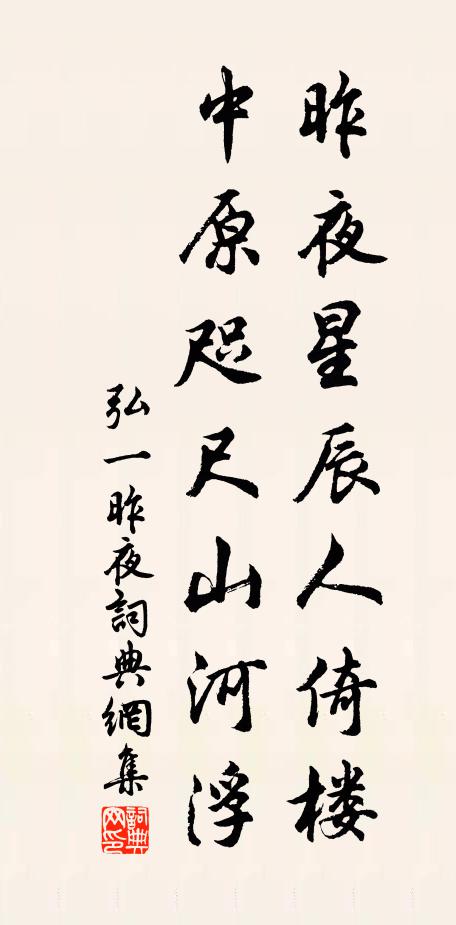 昨夜星辰人倚楼
中原咫尺山河浮
弘一昨夜詞典網集
詞典網印